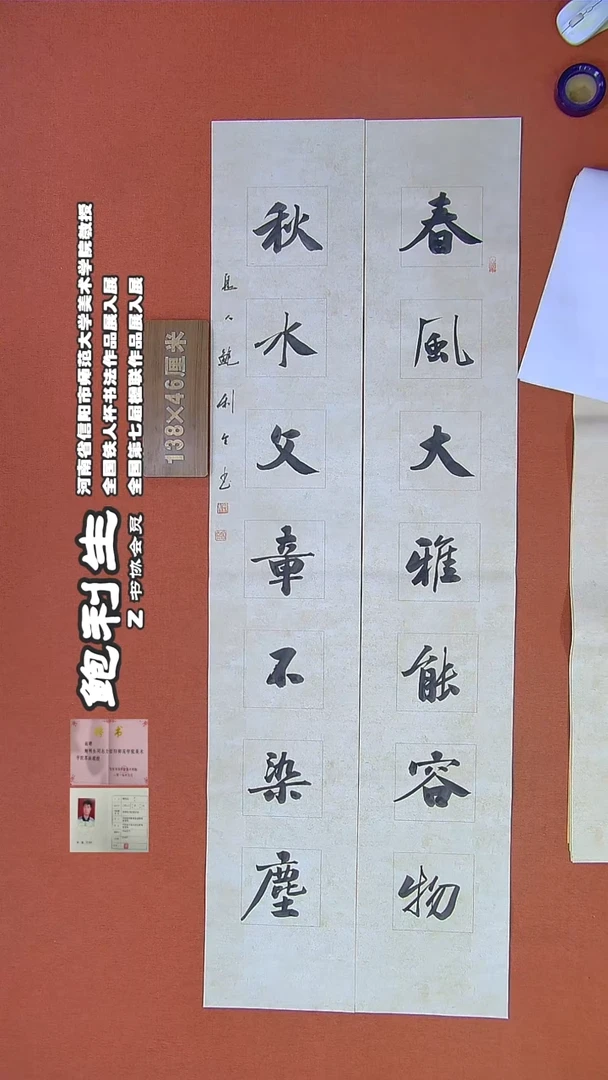 春風大雅能容物
秋水文章不染塵
息人鲍利生书
138×46厘米
河南省信阳市师范大学美术学院教授
全国铁人杯书法作品展入展
全国第七届楹联作品展入展
鲍利生
Z 书协会员
聘书